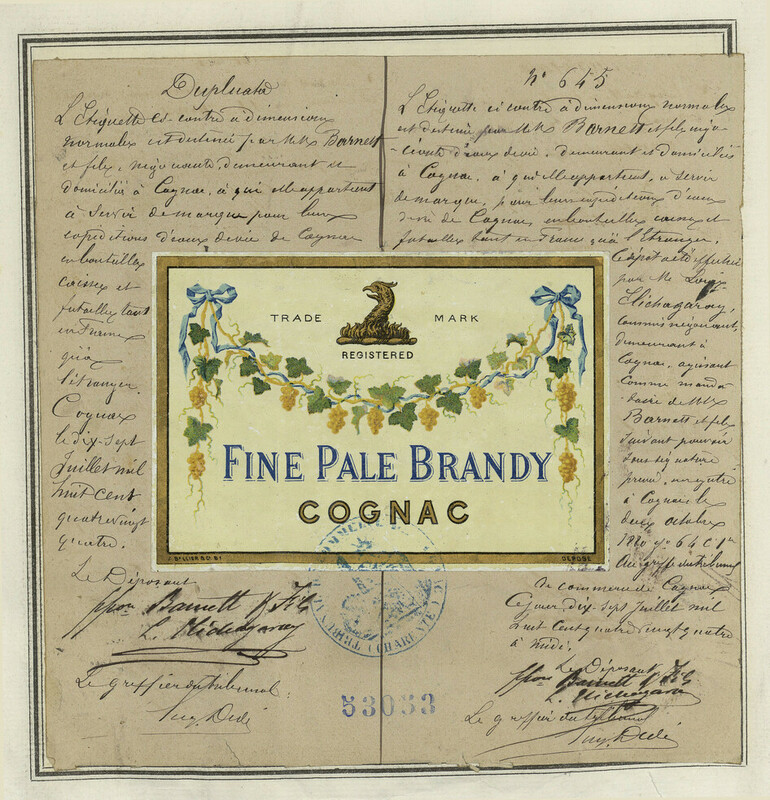 Duplicata
L'Etiquette ci-contre a dimensions
normales est destinée par MM. Barnett
et fils, négociants, demeurant et
domiciliés à Cognac, à qui elle appartient
à servir de marque pour leurs
expéditions d'eaux de vie de Cognac
en bouteilles
caisses et
futailles tant
en France
qu'à
l'étranger.
Cognac
le dix-sept
Juillet mil
huit cent
quatre vingt
quatre.
Le Déposant
ppon Barnett & Fils
L. Elichagaray
Le greffier du tribunal:
Aug. Dédé
N° 645
L'Etiquette ci contre à dimensions normales
est destinée par MM. Barnett et fils négo-
-ciants d'eaux de vie, demeurant et domiciliés
à Cognac, à qui elle appartient, à servir
de marque, pour leurs expéditions d'eaux
de vie de Cognac, en bouteilles caisses et
futailles tant en France qu'à l'Etranger.
Ce dépot a été effectué
par M. Louis
Elichagaray,
commis négociant,
demeurant à
Cognac, agissant
comme manda-
taire de MM.
Barnett et fils
suivant pouvoir
sous seing
privé, enregistré
à Cognac le
deux octobre
1880 f° 64 C 1re
Au greffe du tribunal
de commerce de Cognac
Ce jour dix-sept Juillet mil
huit cent quatre vingt quatre
à midi.
Le Déposant
ppon Barnett & Fils
L. Elichagaray
Le greffier du tribunal
Aug. Dédé
TRADE MARK
REGISTERED
FINE PALE BRANDY
COGNAC
DÉPOSÉ
TRIBUNAL DE COMMERCE
(CHARENTE)
53053